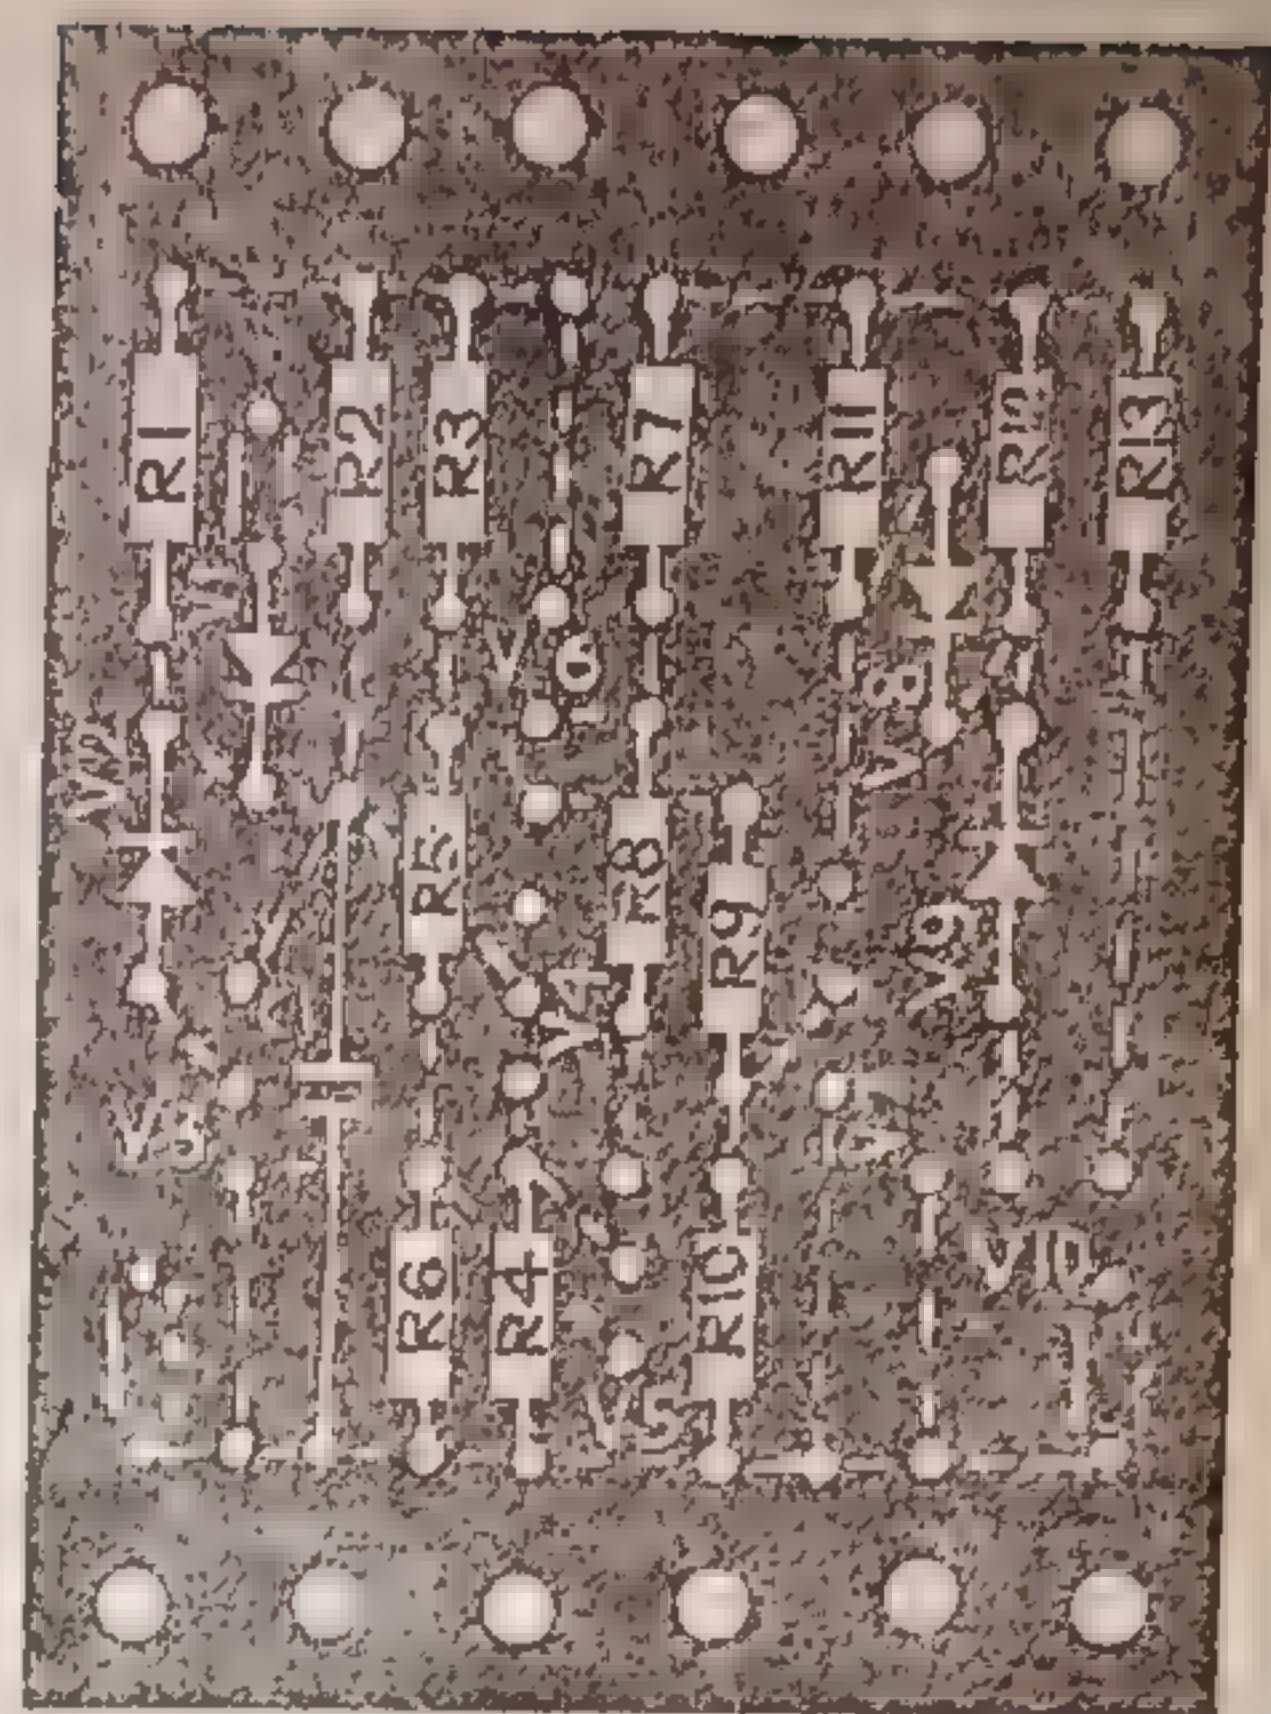 R1
R2
R3
R7
R11
R12
R13
V
6
V8
R5
R8
R9
V9
V4
V3
R6
R4
R10
V10
V5